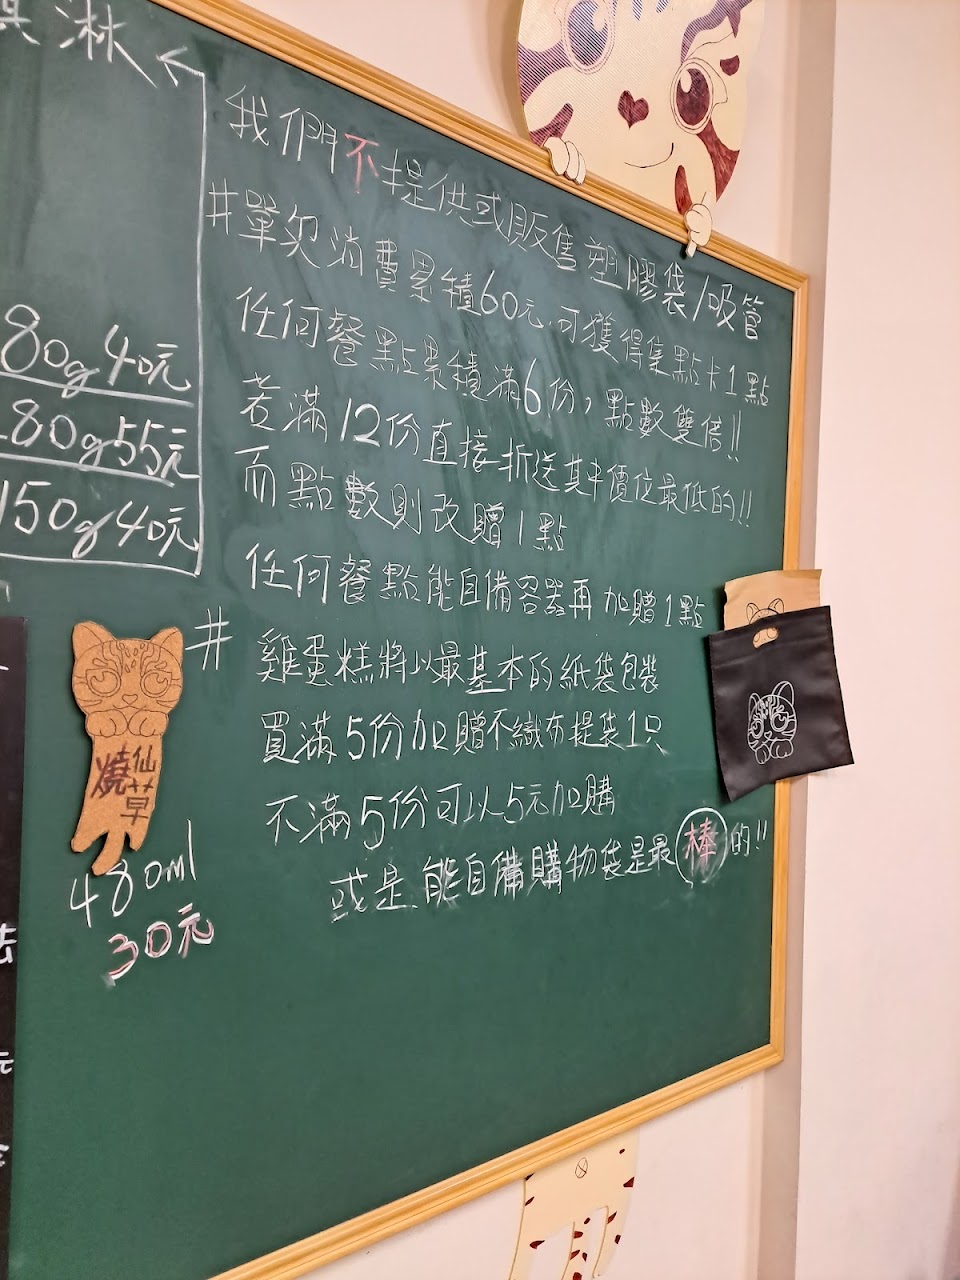 淋
80g 40元
80g 55元
150g 40元
我們不提供或販售塑膠袋/吸管
#單次消費累積60元,可獲得集點卡1點
任何餐點累積滿6份,點數雙倍!!
若滿12份直接折送其半價位最低的!!
而點數則改贈1點
任何餐點能自備容器再加贈1點
#雞蛋糕將以最基本的紙袋包裝
買滿5份加贈不織布提袋1只
不滿5份可以5元加購
或是能自備購物袋是最棒的!!
燒仙草
480ml
30元